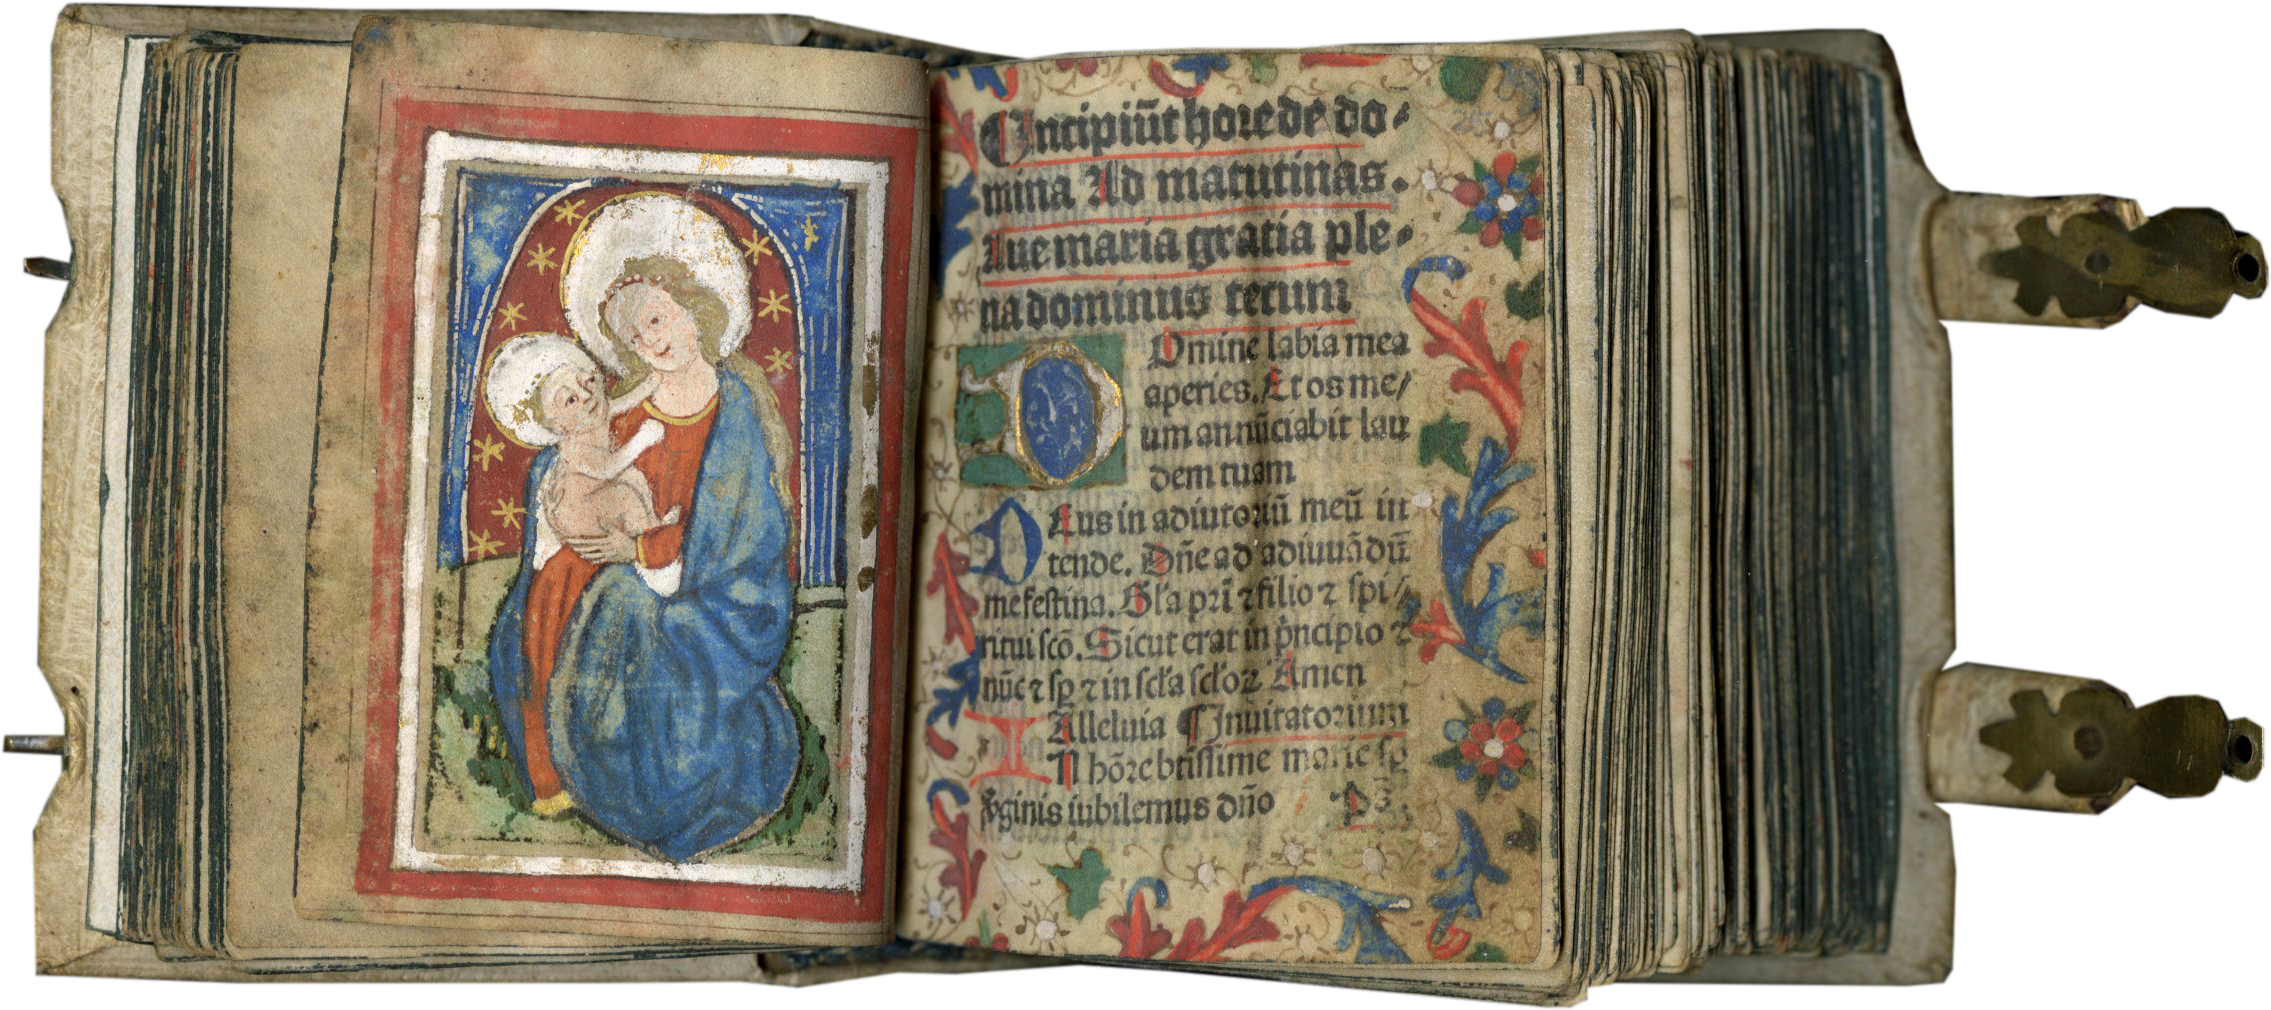 Incipiūt hore de do⸗
mina Ad matutinas.
Aue maria gratia ple⸗
na dominus tecum
Domine labia mea
aperies. Et os me/
um annūciabit lau
dem tuam
Deus in adiutoriū meū in
tende. Dn̄e ad adiuuādū
me festina. Gl'a pr̄i ⁊ filio ⁊ spi⸗
ritui scō. Sicut erat in pͥncipio ⁊
nūc ⁊ sꝑ ⁊ in scl'a scl'oꝝ Amen
Alleluia ¶ Inuitatorium
In hōre btīssime marie
ꝟginis iubilemus dn̄o